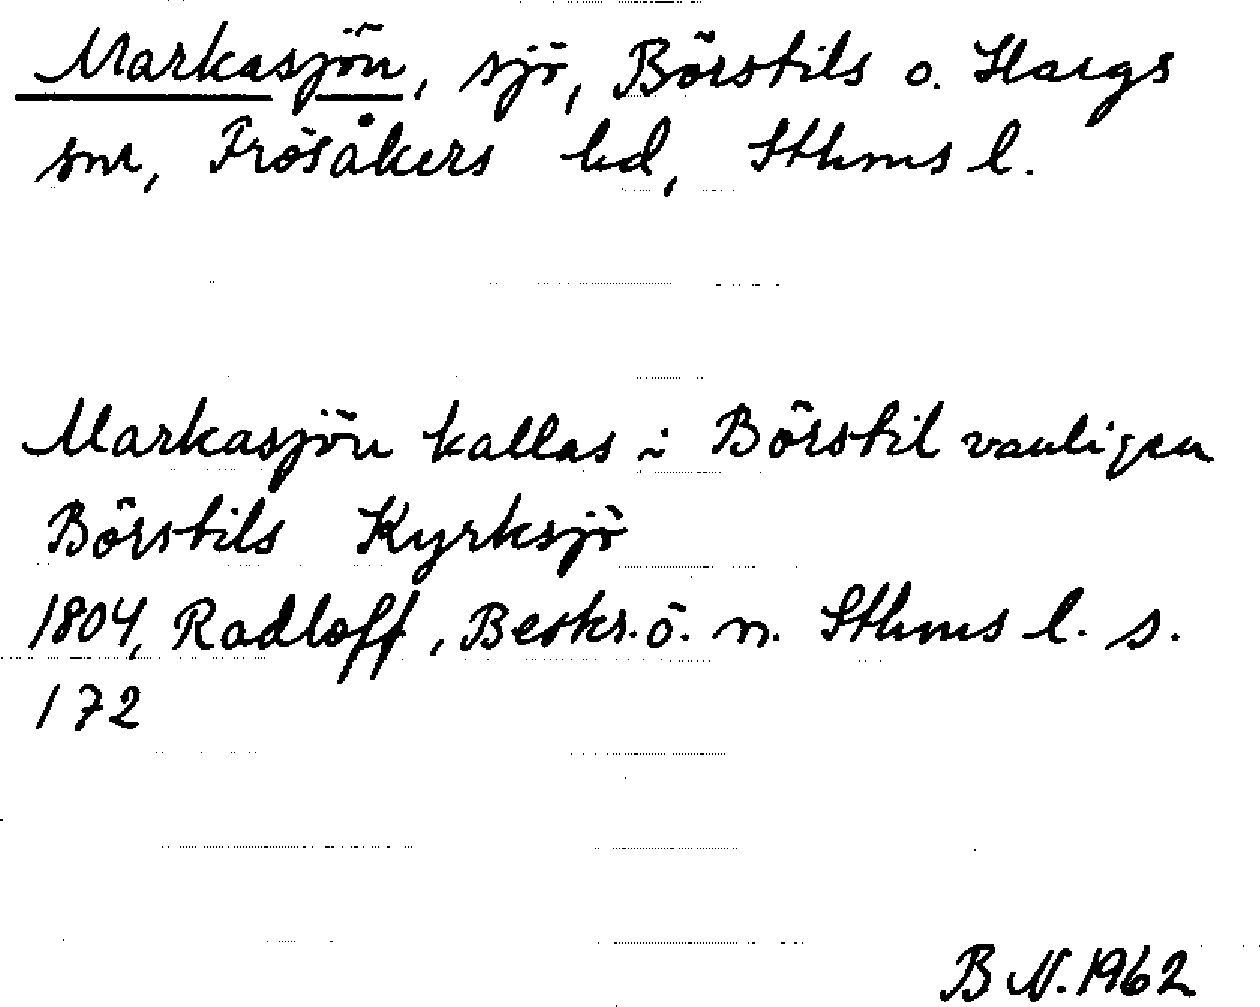 Markasjön, sjö, Börstils o. Hargs
snr, Frösåkers hd, Sthms l.
Markasjön kallas i Börstil vanligen
Börstils Kyrksjö
1804, Radloff, Beskr. ö. n. Sthms l. s.
172
B N. 1962